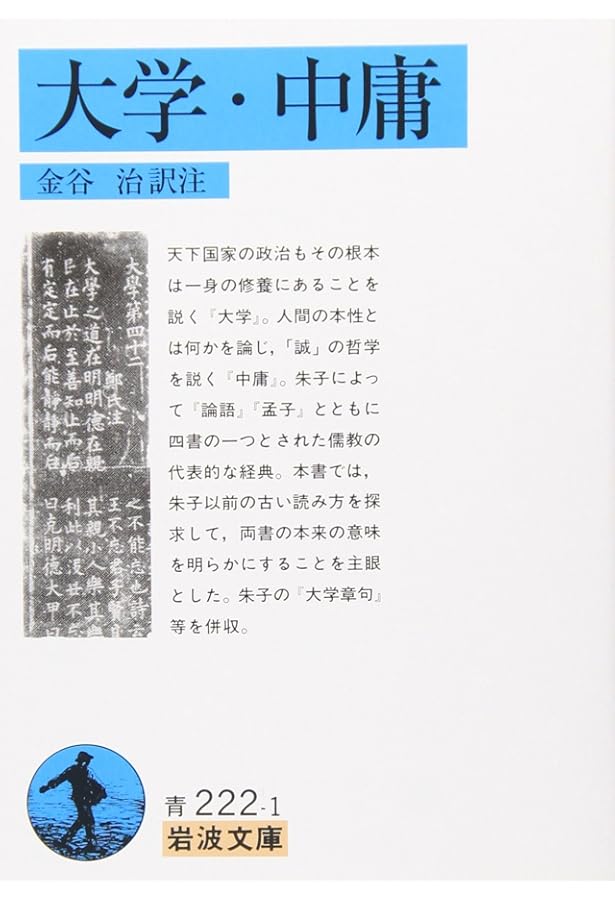 大学・中庸
金谷 治訳注
大學第四十二
鄭氏注
大學之道在明明德在親
民在止於至善知止而后
有定定而后能靜靜而后
之不能忘也詩云
王不忘君子賢
其親小人樂其
利此以沒世不忘
曰克明德大甲曰
天下国家の政治もその根本
は一身の修養にあることを
説く『大学』。人間の本性と
は何かを論じ,「誠」の哲学
を説く『中庸』。朱子によっ
て『論語』『孟子』とともに
四書の一つとされた儒教の
代表的な経典。本書では,
朱子以前の古い読み方を探
求して，両書の本来の意味
を明らかにすることを主眼
とした。朱子の『大学章句』
等を併収。
青 222-1
岩波文庫